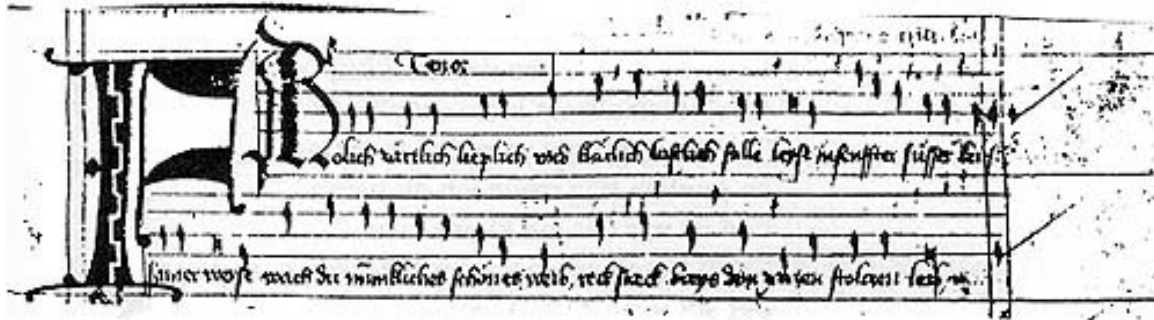 Tenor
FRolich zärtlich lieplich vnd klärlich lustlich stille leyse in senffter süsser
sainer weyse wach du minnikliches schönes weib, reck streck breys dein zarten stolczen leib,